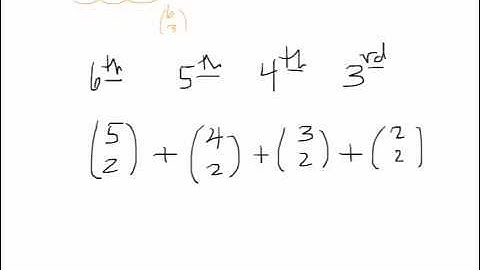 (6 3)
6th 5th 4th 3rd
(5 2) + (4 2) + (3 2) + (2 2)